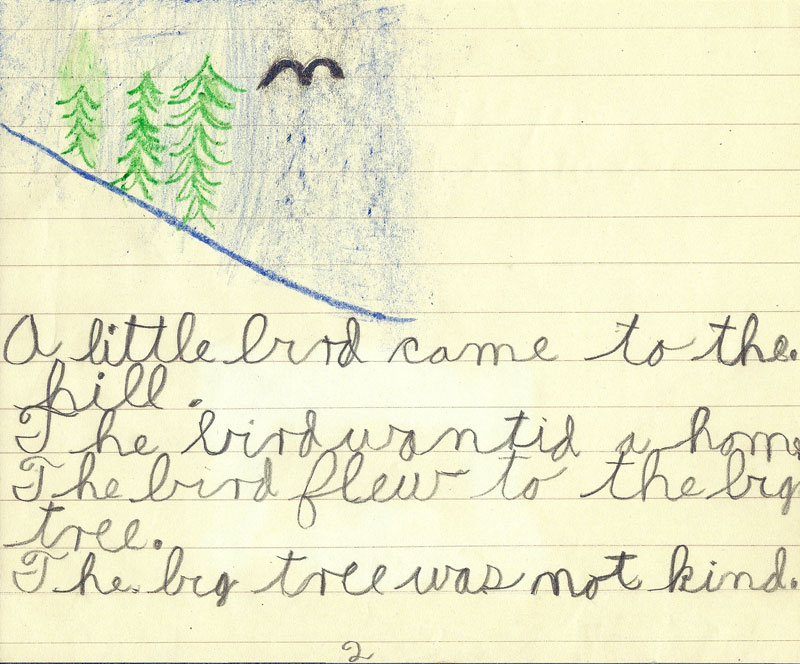 A little bird came to the
hill.
The bird wantid a home
The bird flew to the big
tree.
The big tree was not kind.
2